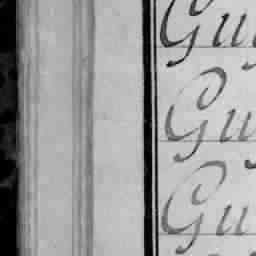 Gu
Gu
Gu